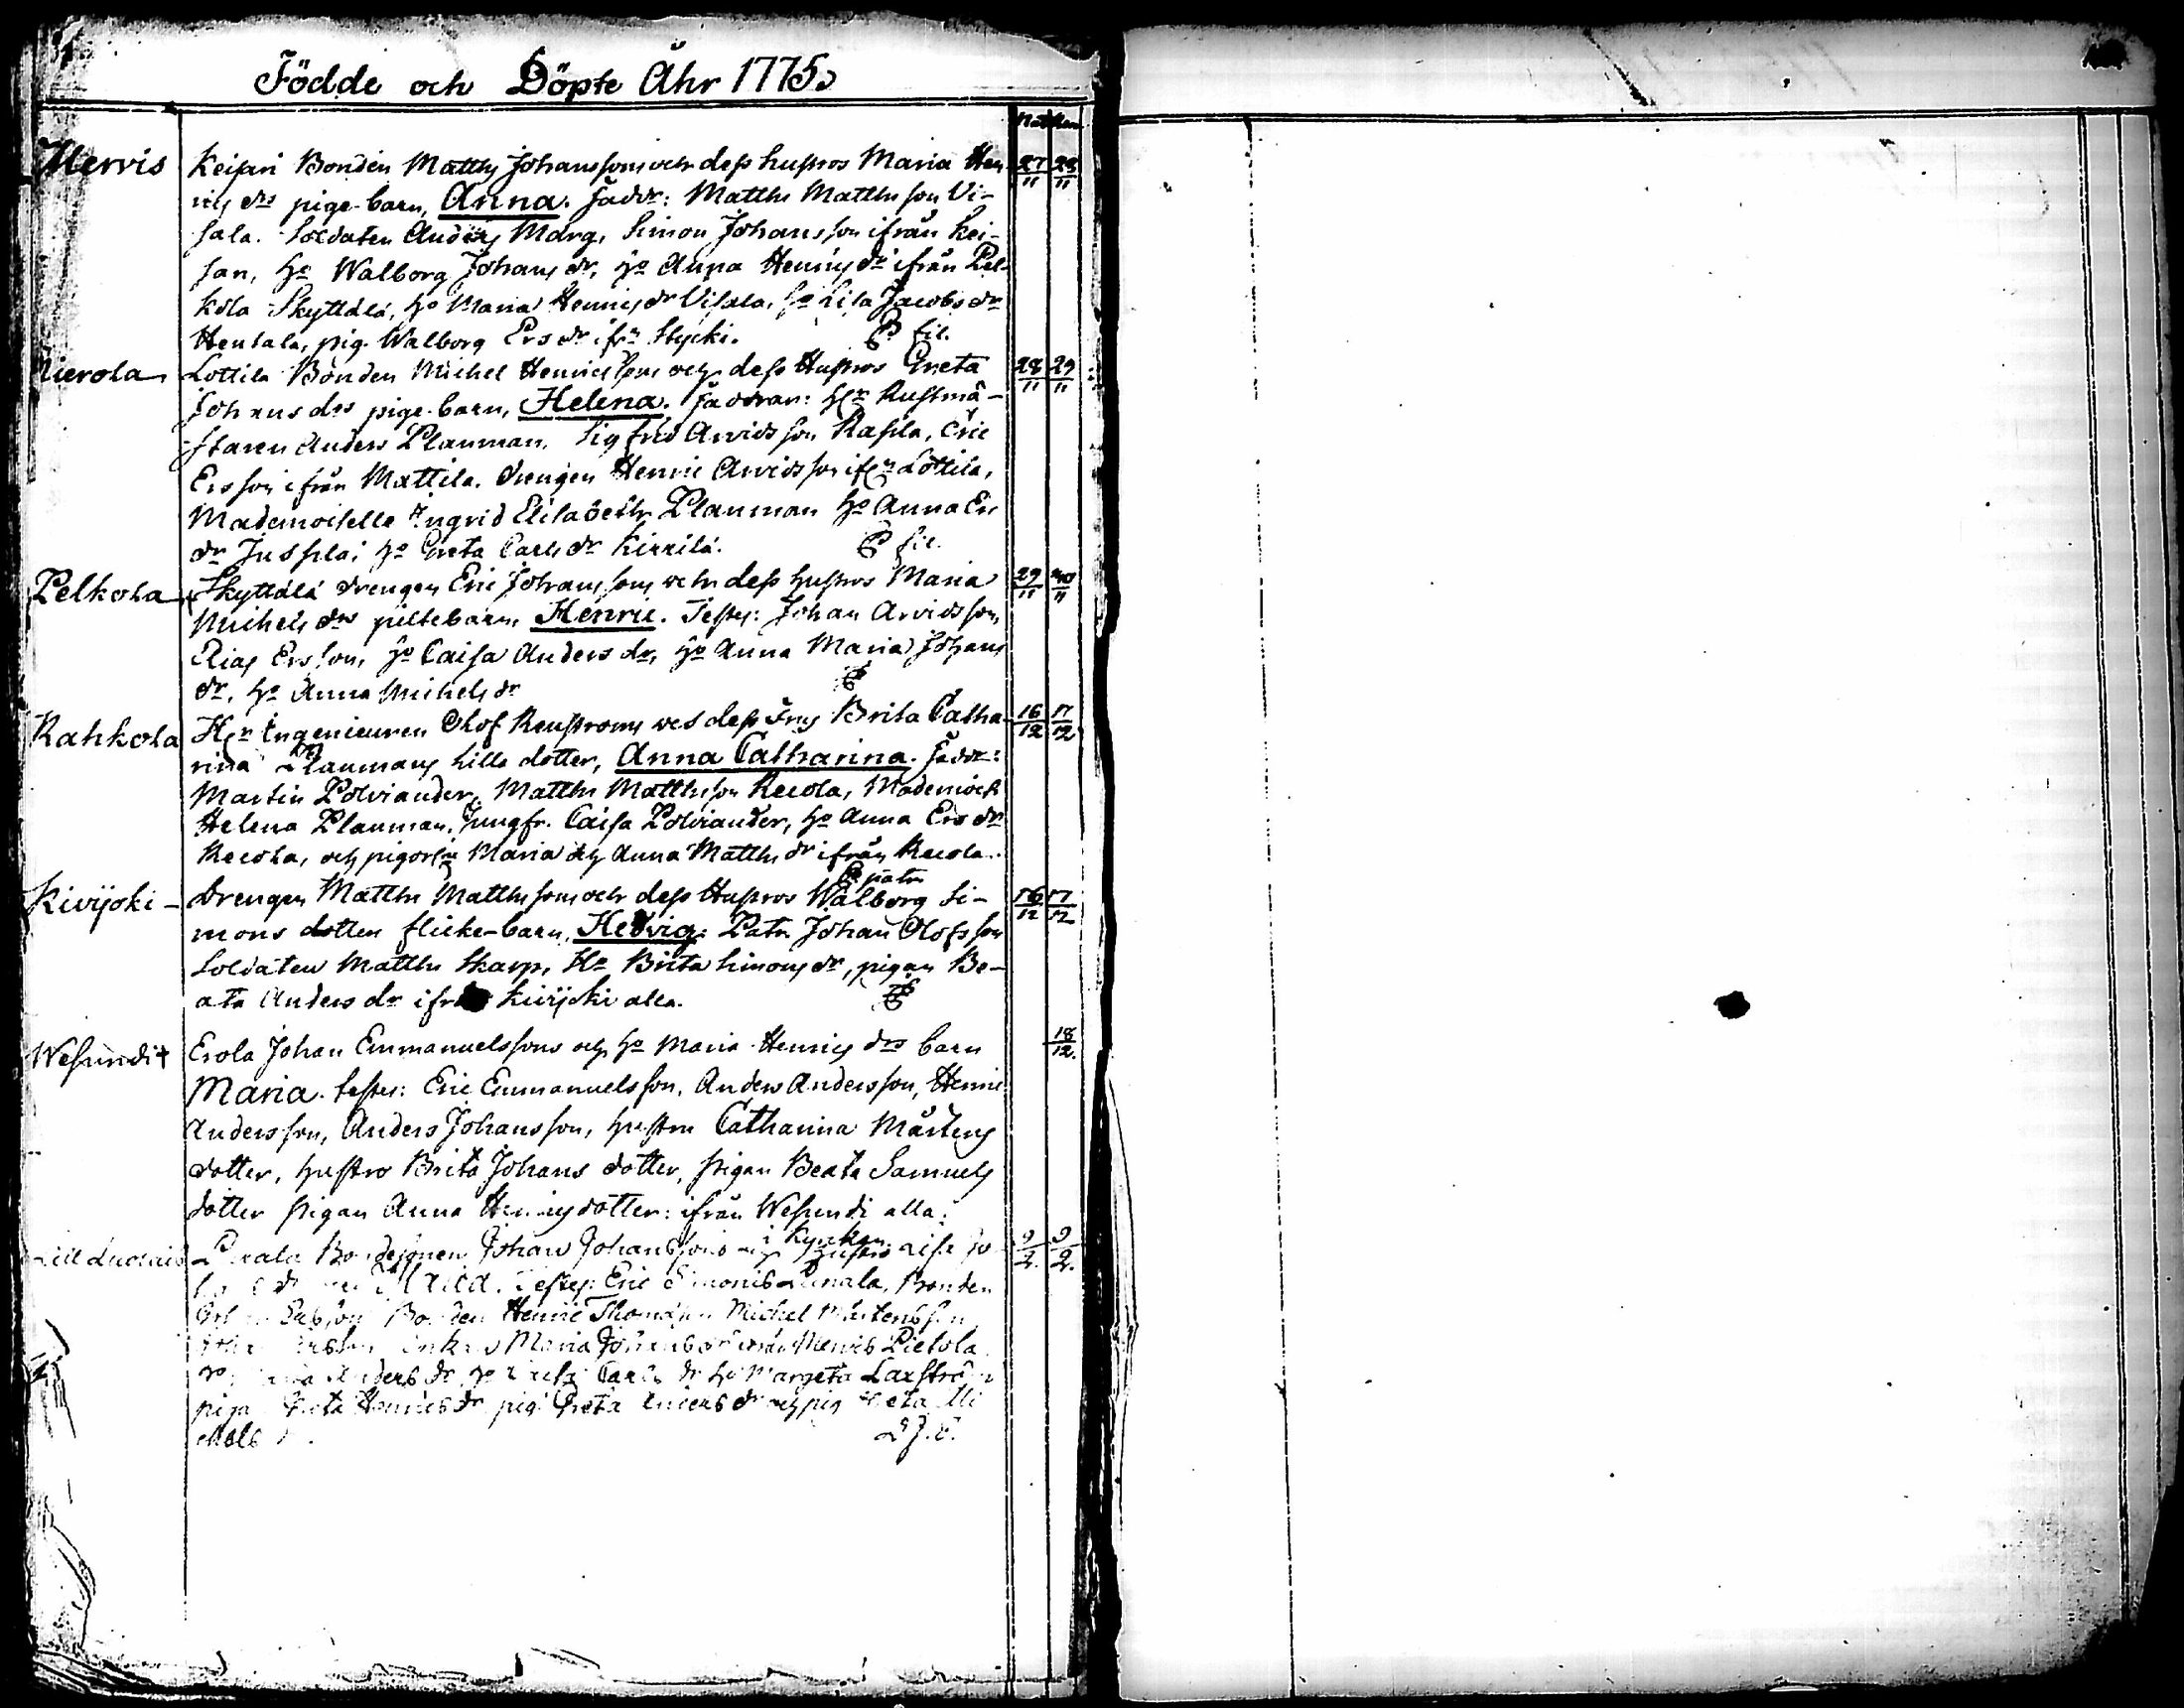 Födde och Döpte Åhr 1775.
Nat Ren
Mervis Keisari Bonden Matths Johanssons och dess hustros Maria Hen 27/11 28/11
rics drs pige-barn, Anna. Faddr: Matths Matthsson Vi-
sala. Soldaten Anders Marg, Simon Johansson ifrån Kei-
sari, ho Walborg Johans dr, ho Anna Henrics dr ifrån Pel-
kola Skyttälä, ho Maria Henrics dr Visala, ho Lisa Jacobs dr
Hentala, pig. Walborg Ers dr ifrn Stycki. fil.
Nierola Lottila Bonden Michel Henricssons och dess Hustros Greta 28/11 29/11
Johans drs pige-barn, Helena. Faddrar: Hr Rustmä-
staren Anders Planman, Sigfrid Arvidsson Rasila, Eric
Ersson ifrån Mattila. drengen Henric Arvidsson ifrn Lottila,
Mademoiselle Ingrid Elisabeth Planman ho Anna Ers
dr Jussila; ho Greta Carls dr Kirrilä. fil.
Pelkola Skyttälä drengen Eric Johanssons och dess hustros Maria 29/11 30/11
Michels drs piltebarn, Henric. Testes: Johan Arvidsson,
Elias Ersson, ho Caisa Anders dr, ho Anna Maria Johans
dr, ho Anna Michels dr
Rahkola Hr Ingenieuren Olof Renstroms och dess Frus Brita Catha 16/12 17/12
rina Planmans lilla dotter, Anna Catharina. Faddr:
Martin Polviander, Matths Matthsson Recola, Mademois.
Helena Planman, Jungfr. Caisa Polviander, ho Anna Ers dr
Recola, och pigorne Maria och Anna Matths dr ifrån Recola.
patr
Kivijoki - drengen Matths Matthssons och dess Hustros Walborg Si- 16/12 17/12
mons dotters flicke-barn, Hedvig. Patr. Johan Olofsson
Soldaten Matths Skarp, Ho Brita Simons dr, pigan Be-
ata Anders dr ifrån Kivijoki alla.
Wesundi Erola Johan Emmanuelssons och ho Maria Henrics drs barn 18/12.
Maria. Testes: Eric Emmanuelsson, Anders Andersson, Henric
Andersson, Anders Johansson, hustru Catharina Mårtens
dotter, hustro Brita Johans dotter, pigan Beata Samuels
dotter pigan Anna Henricsdotter: ifrån Wesundi alla.
i Kyrkan
Bondesonen Johan Johanssons och hustro Lisa Jo 9/2. 9/2.
Testes: Eric Simonis Bonden
Bonden Henric Thomasson Michel Mårtensson
Maria Johans dr ifrån Mervis Pietola
Anders dr ho Caisa Carls dr ho Margeta Laxström
piga Greta Henrics dr pig. Greta Anders dr och pig Greta Mi
chels dr.